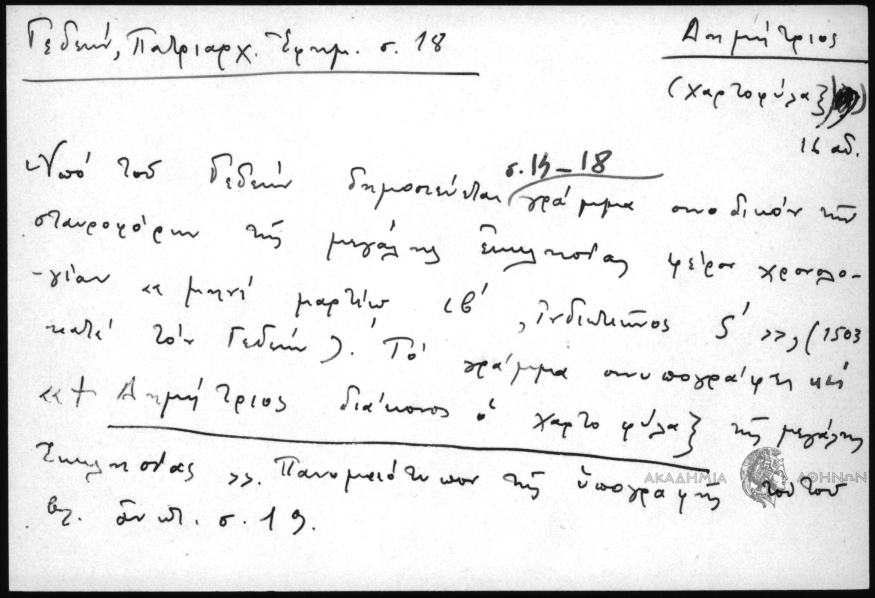 Γεδεών, Πατριαρχ. Ἐφημ. σ. 18
Δημήτριος
(χαρτοφύλαξ)
16 αἰ.
Ὑπό τοῦ Γεδεών δημοσιεύεται σ. 15-18 γράμμα συνοδικόν τῶν
σταυροφόρων τῆς μεγάλης Ἐκκλησίας φέρον χρονολο-
-γίαν «μηνί μαρτίῳ ιβ΄, Ἰνδικτιῶνος ς΄», (1503
κατά τόν Γεδεών). Τό γράμμα συνυπογράφει καί
«+ Δημήτριος διάκονος ὁ χαρτοφύλαξ τῆς μεγάλης
Ἐκκλησίας». Πανομοιότυπον τῆς ὑπογραφῆς τούτου
βλ. ἔνθ. σ. 19.
ΑΚΑΔΗΜΙΑ ΑΘΗΝΩΝ